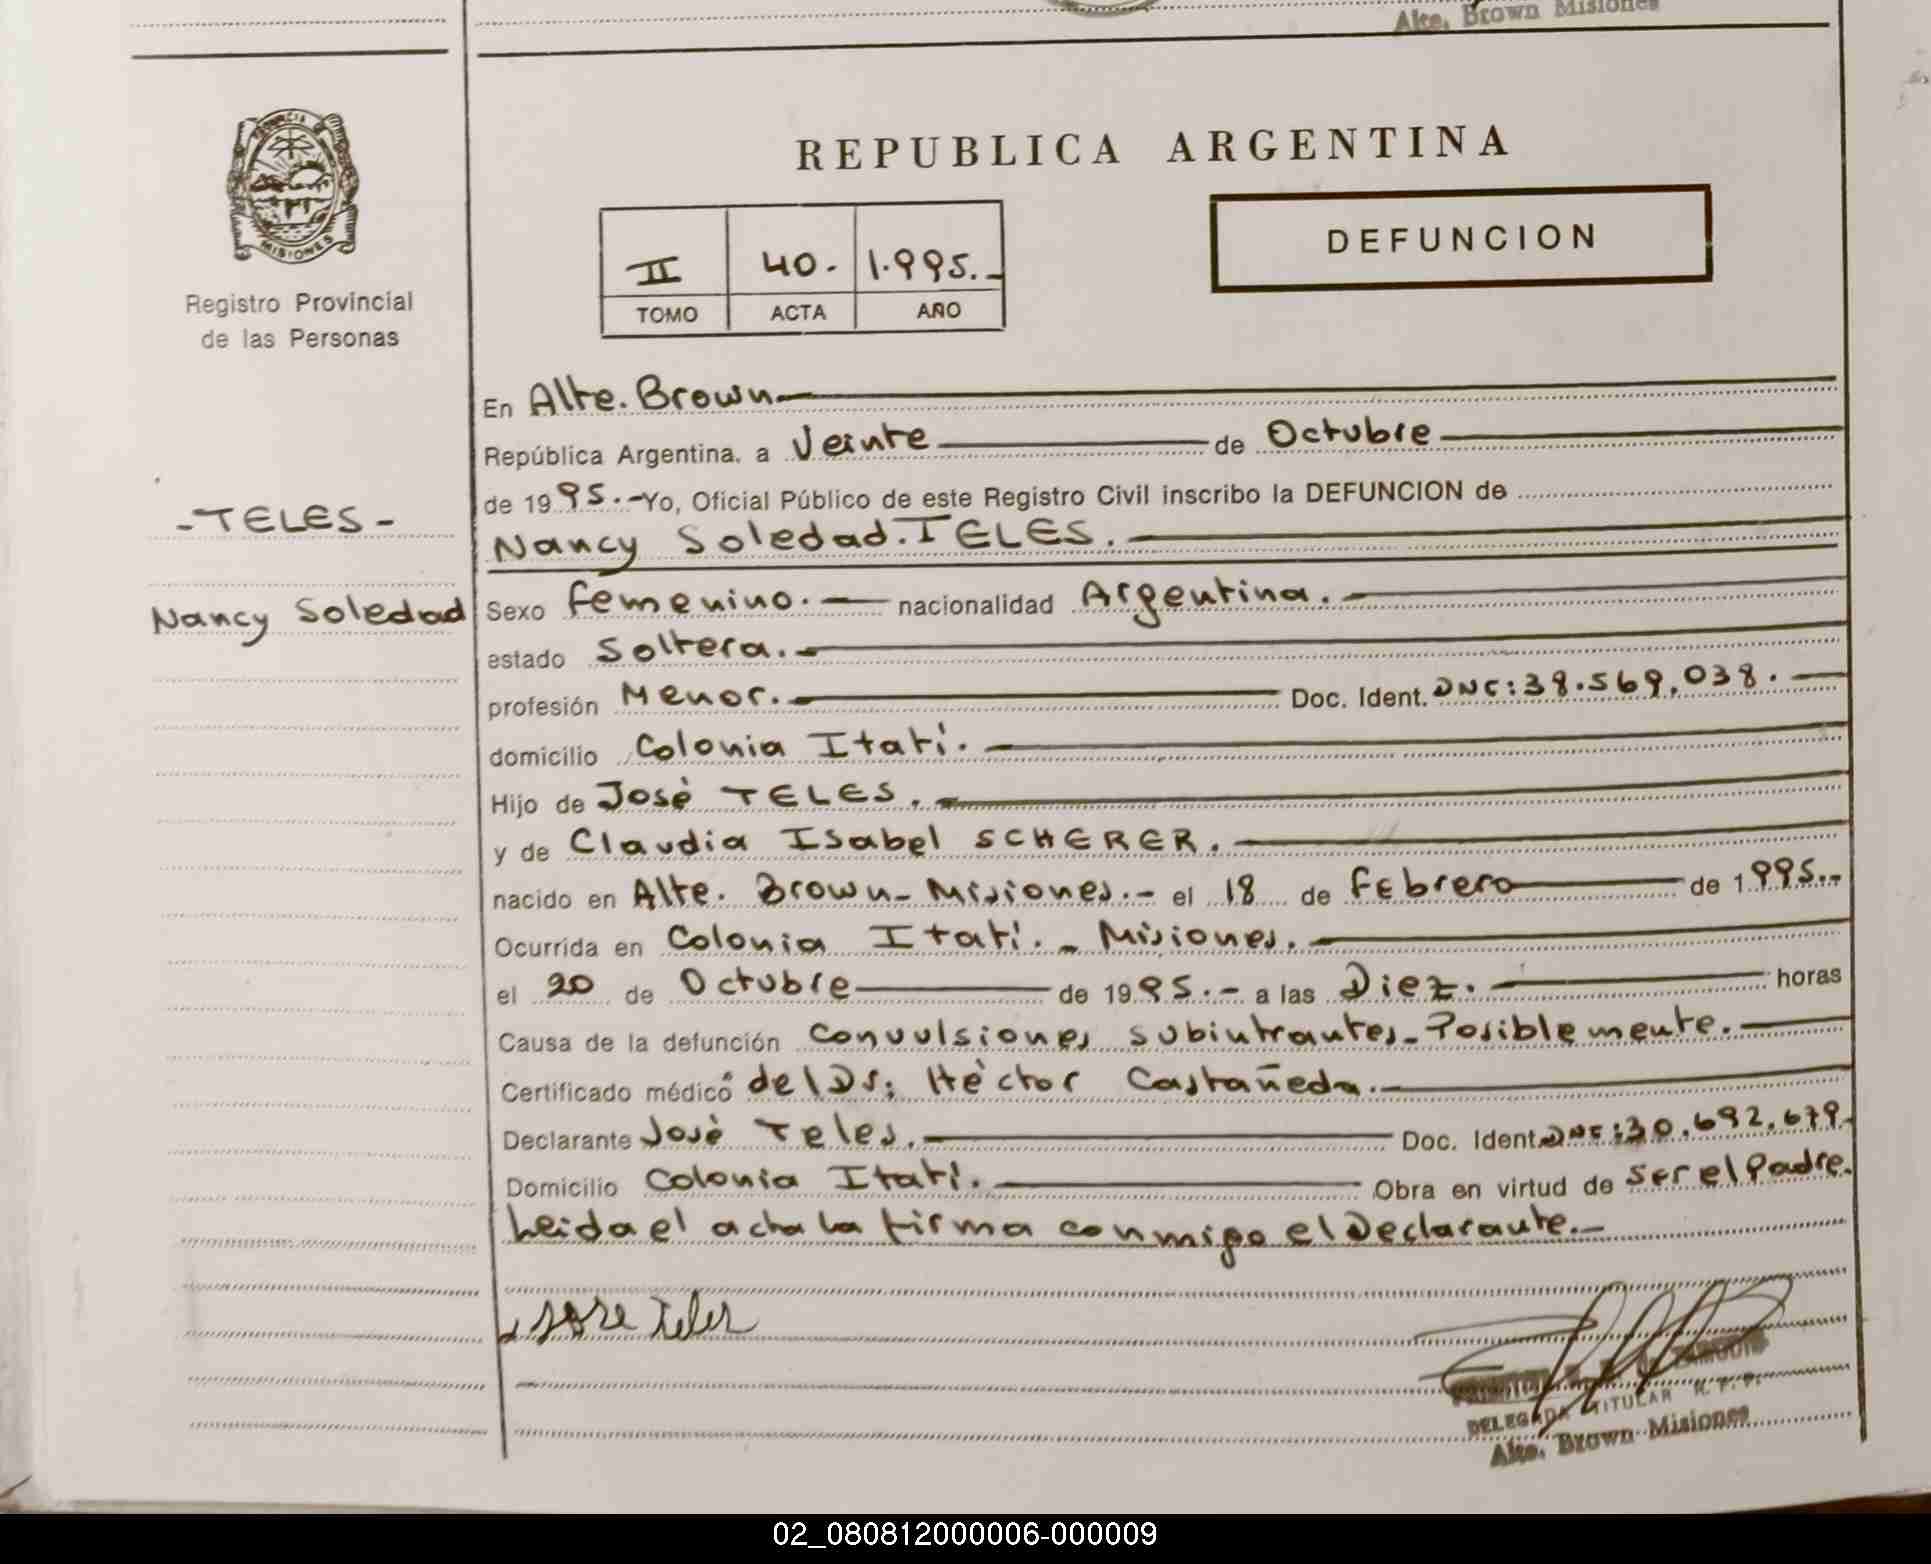 Alte. Brown Misiones
PROVINCIA DE
MISIONES
Registro Provincial
de las Personas
REPUBLICA ARGENTINA
DEFUNCION
II 40.- 1.995.-
TOMO ACTA AÑO
En Alte. Brown
República Argentina, a Veinte de Octubre
de 1995.- Yo, Oficial Público de este Registro Civil inscribo la DEFUNCION de
-TELES-
Nancy Soledad
Nancy Soledad. TELES.
Sexo femenino. nacionalidad Argentina.
estado Soltera.
profesión Menor. Doc. Ident. DNI: 38.569.038.
domicilio Colonia Itatí.
Hijo de José TELES.
y de Claudia Isabel SCHERER.
nacido en Alte. Brown - Misiones.- el 18 de febrero de 1.995.-
Ocurrida en Colonia Itatí. - Misiones.
el 20 de Octubre de 1995.- a las Diez. horas
Causa de la defunción Convulsiones subintrantes - Posiblemente.
Certificado médico del Dr: Héctor Castañeda.
Declarante José Teles. Doc. Ident. DNI: 30.692.679.
Domicilio Colonia Itatí. Obra en virtud de ser el Padre.
Leida el acta la firma conmigo el Declarante.-
Jose Teles
DELEGADA TITULAR R. P. P.
Alte. Brown Misiones
02_080812000006-000009